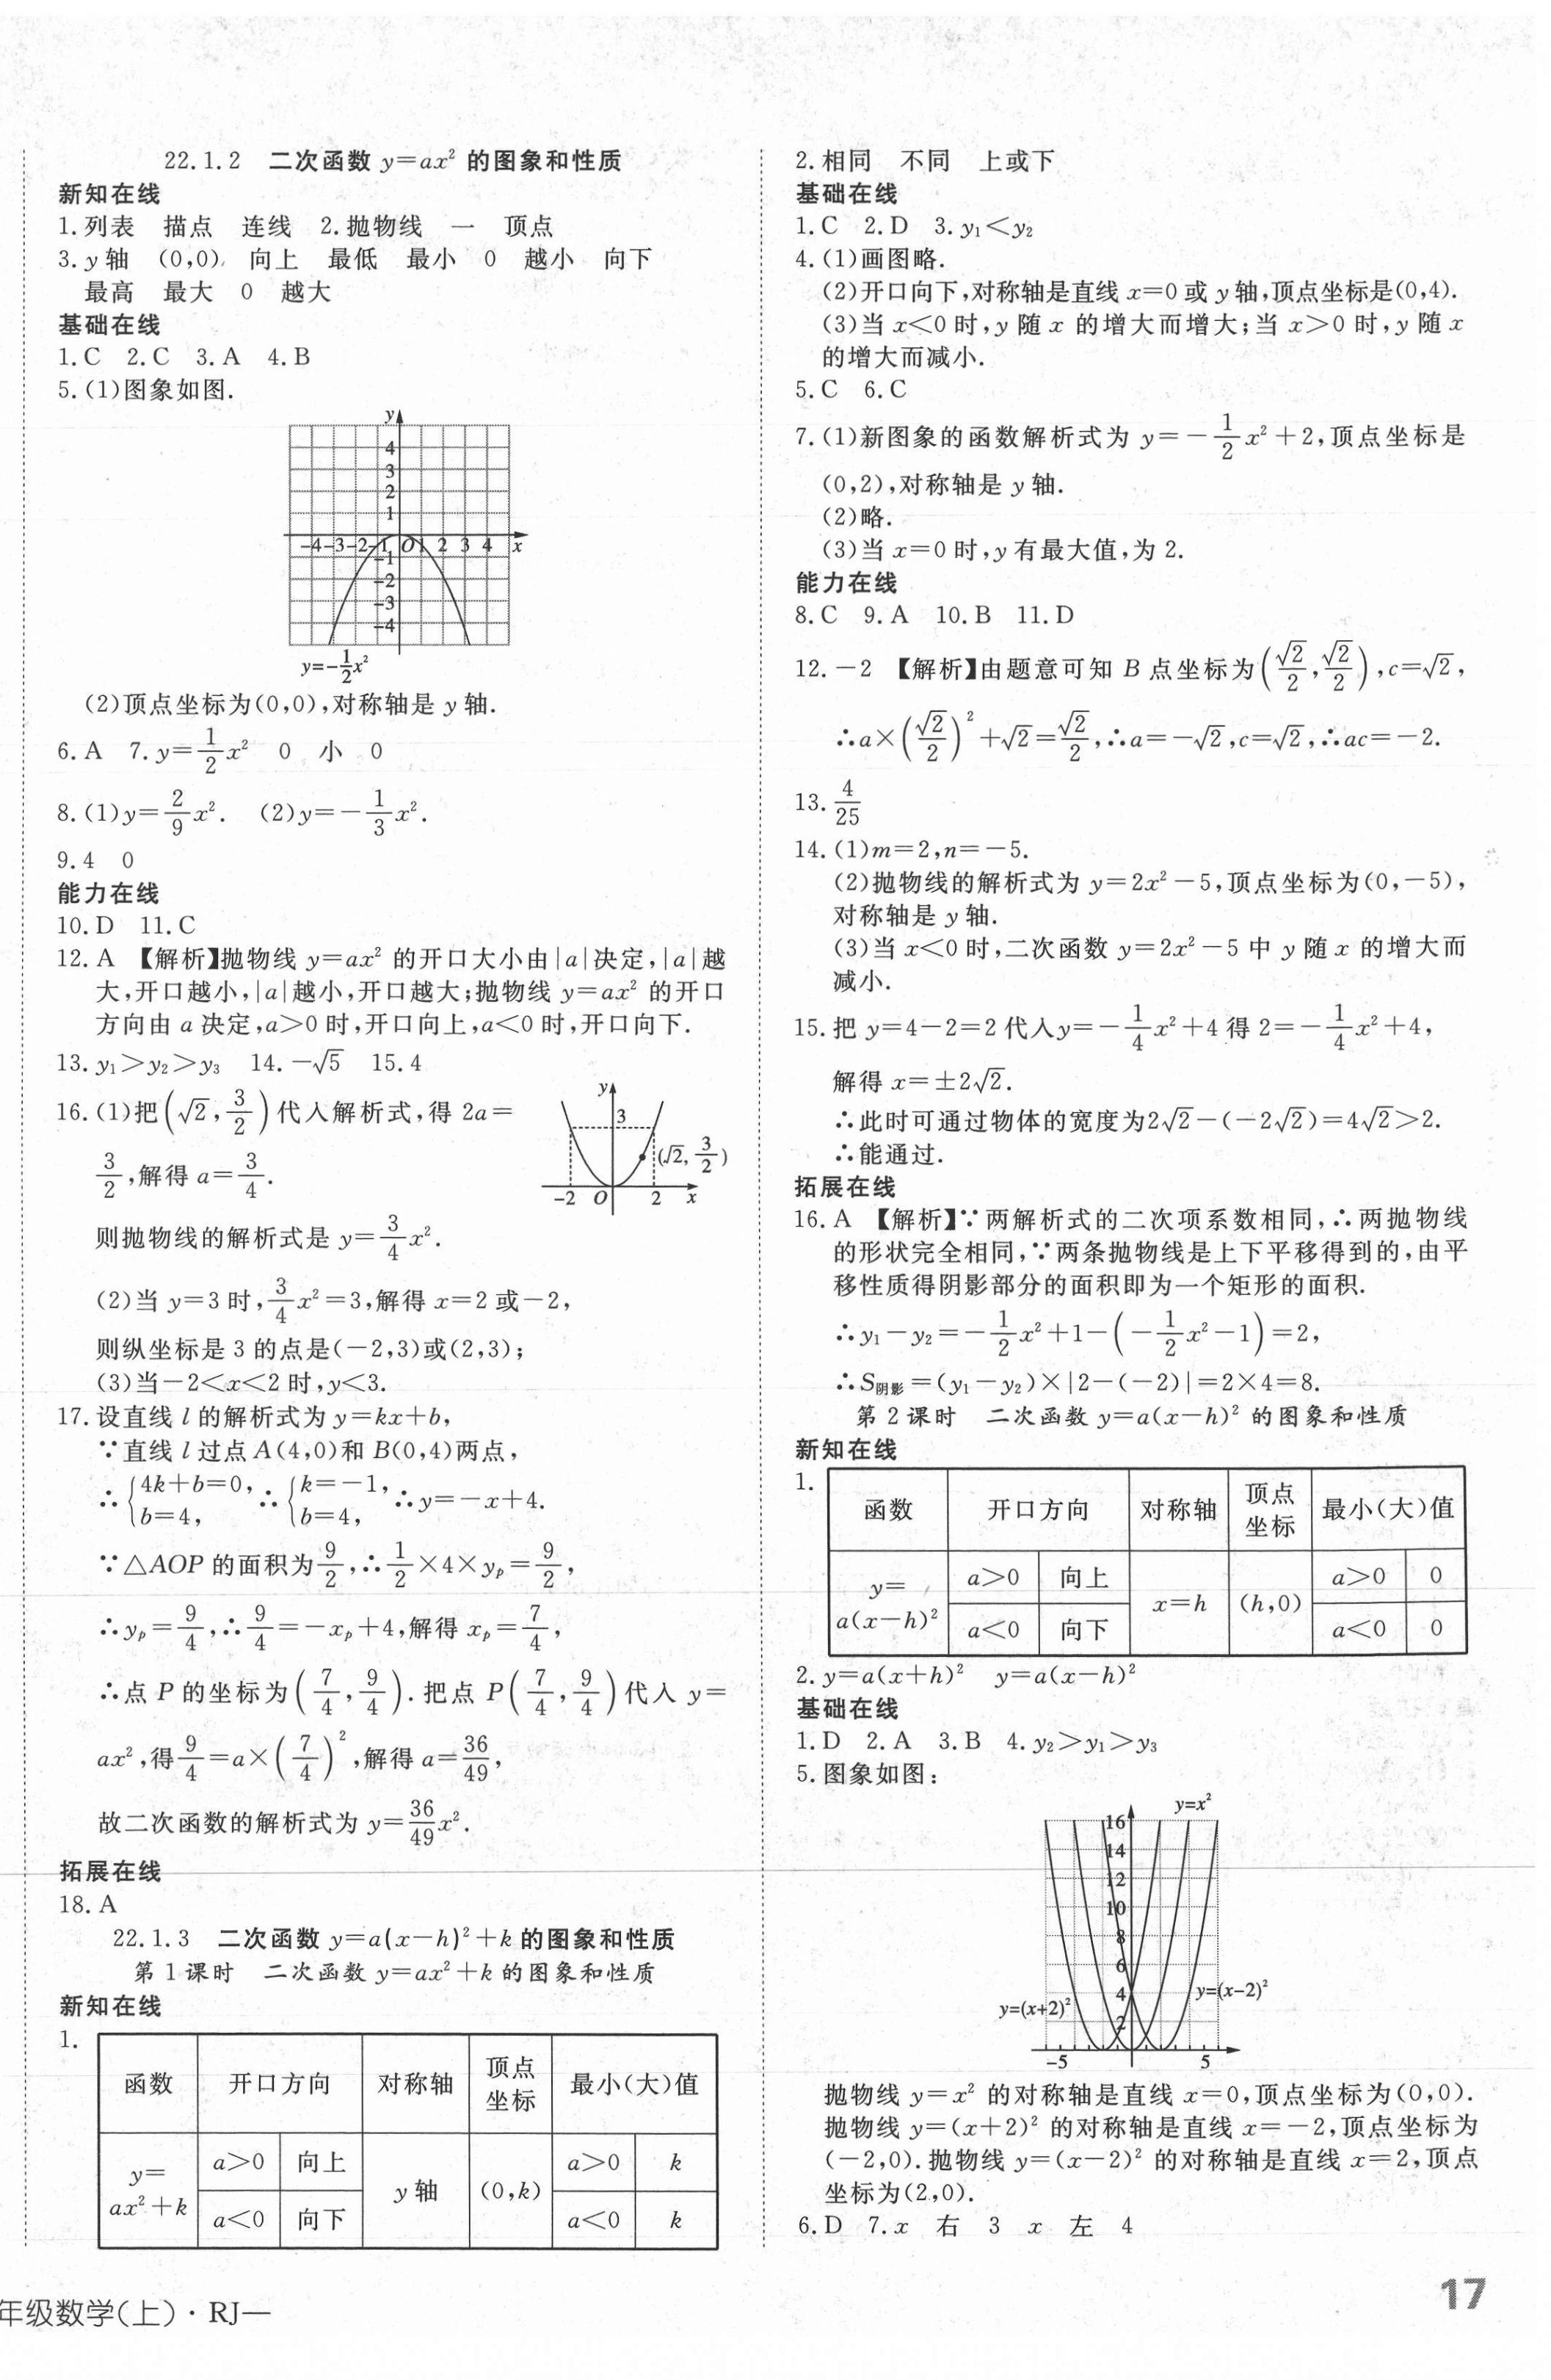 22.1.2 二次函数 y=ax² 的图象和性质
新知在线
1.列表 描点 连线 2.抛物线 一 顶点
3.y轴 (0,0) 向上 最低 最小 0 越小 向下
最高 最大 0 越大
基础在线
1.C 2.C 3.A 4.B
5.(1)图象如图.
y
4
3
2
1
-4 -3 -2 -1 O 1 2 3 4 x
-1
-2
-3
-4
y=-1/2x²
(2)顶点坐标为(0,0),对称轴是 y 轴.
6.A 7.y=1/2x² 0 小 0
8.(1)y=2/9x². (2)y=-1/3x².
9.4 0
能力在线
10.D 11.C
12.A 【解析】抛物线 y=ax² 的开口大小由|a|决定,|a|越
大,开口越小,|a|越小,开口越大;抛物线 y=ax² 的开口
方向由 a 决定,a>0 时,开口向上,a<0 时,开口向下.
13.y₁>y₂>y₃ 14.-√5 15.4
16.(1)把(√2,3/2)代入解析式,得 2a=
3/2,解得 a=3/4.
y
3
(√2, 3/2)
-2 O 2 x
则抛物线的解析式是 y=3/4x².
(2)当 y=3 时,3/4x²=3,解得 x=2 或-2,
则纵坐标是 3 的点是(-2,3)或(2,3);
(3)当-2<x<2 时,y<3.
17.设直线 l 的解析式为 y=kx+b,
∵直线 l 过点 A(4,0)和 B(0,4)两点,
∴{4k+b=0, b=4, ∴{k=-1, b=4, ∴y=-x+4.
∵△AOP 的面积为9/2,∴1/2×4×yₚ=9/2,
∴yₚ=9/4,∴9/4=-xₚ+4,解得 xₚ=7/4,
∴点 P 的坐标为(7/4,9/4).把点 P(7/4,9/4)代入 y=
ax²,得9/4=a×(7/4)²,解得 a=36/49,
故二次函数的解析式为 y=36/49x².
拓展在线
18.A
22.1.3 二次函数 y=a(x-h)²+k 的图象和性质
第 1 课时 二次函数 y=ax²+k 的图象和性质
新知在线
1.
函数 开口方向 对称轴 顶点坐标 最小(大)值
y=ax²+k a>0 向上 y 轴 (0,k) a>0 k
a<0 向下 a<0 k
年级数学(上)·RJ—
2.相同 不同 上或下
基础在线
1.C 2.D 3.y₁<y₂
4.(1)画图略.
(2)开口向下,对称轴是直线 x=0 或 y 轴,顶点坐标是(0,4).
(3)当 x<0 时,y 随 x 的增大而增大;当 x>0 时,y 随 x
的增大而减小.
5.C 6.C
7.(1)新图象的函数解析式为 y=-1/2x²+2,顶点坐标是
(0,2),对称轴是 y 轴.
(2)略.
(3)当 x=0 时,y 有最大值,为 2.
能力在线
8.C 9.A 10.B 11.D
12.-2 【解析】由题意可知 B 点坐标为(√2/2,√2/2),c=√2,
∴a×(√2/2)²+√2=√2/2,∴a=-√2,c=√2,∴ac=-2.
13.4/25
14.(1)m=2,n=-5.
(2)抛物线的解析式为 y=2x²-5,顶点坐标为(0,-5),
对称轴是 y 轴.
(3)当 x<0 时,二次函数 y=2x²-5 中 y 随 x 的增大而
减小.
15.把 y=4-2=2 代入y=-1/4x²+4 得 2=-1/4x²+4,
解得 x=±2√2.
∴此时可通过物体的宽度为2√2-(-2√2)=4√2>2.
∴能通过.
拓展在线
16.A 【解析】∵两解析式的二次项系数相同,∴两抛物线
的形状完全相同,∵两条抛物线是上下平移得到的,由平
移性质得阴影部分的面积即为一个矩形的面积.
∴y₁-y₂=-1/2x²+1-(-1/2x²-1)=2,
∴S阴影=(y₁-y₂)×|2-(-2)|=2×4=8.
第 2 课时 二次函数 y=a(x-h)² 的图象和性质
新知在线
1.
函数 开口方向 对称轴 顶点坐标 最小(大)值
y=a(x-h)² a>0 向上 x=h (h,0) a>0 0
a<0 向下 a<0 0
2.y=a(x+h)² y=a(x-h)²
基础在线
1.D 2.A 3.B 4.y₂>y₁>y₃
5.图象如图:
y=x²
16
14
12
10
8
6
4
2
y=(x+2)²
y=(x-2)²
-5 5
抛物线 y=x² 的对称轴是直线 x=0,顶点坐标为(0,0).
抛物线 y=(x+2)² 的对称轴是直线 x=-2,顶点坐标为
(-2,0).抛物线 y=(x-2)² 的对称轴是直线 x=2,顶点
坐标为(2,0).
6.D 7.x 右 3 x 左 4
17